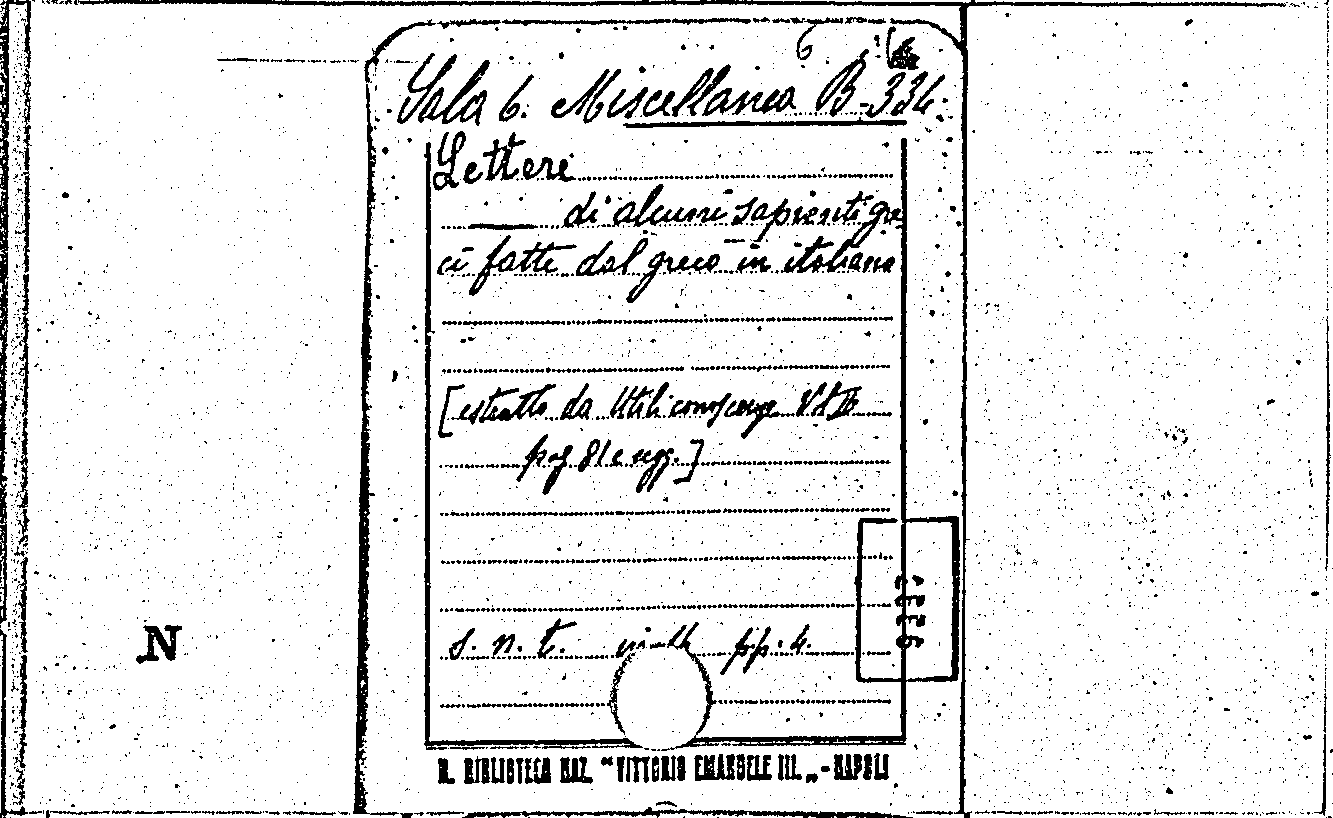 6
Sala 6. Miscellanea B-334
Lettere
di alcuni sapienti gre
ci fatte dal greco in italiano
[estratto da Utili conoscenze
pag 81 e segg.]
s. n. t. pp. 4.
N
R. BIBLIOTECA NAZ. "VITTORIO EMANUELE III. „ - NAPOLI